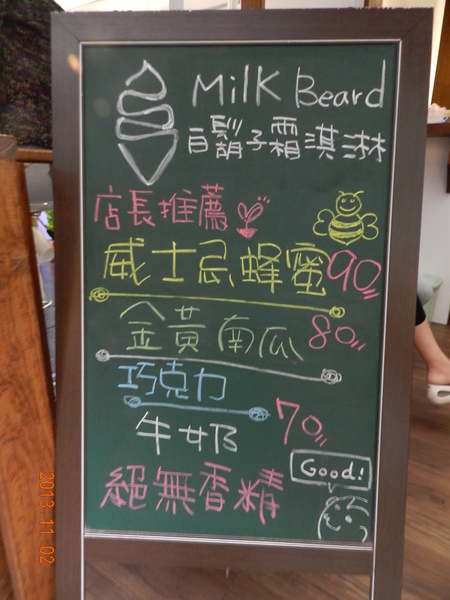 Milk Beard
白鬍子霜淇淋
店長推薦
威士忌蜂蜜90
金黃南瓜 80
巧克力
70
牛奶
Good!
絕無香精
2013 11 02